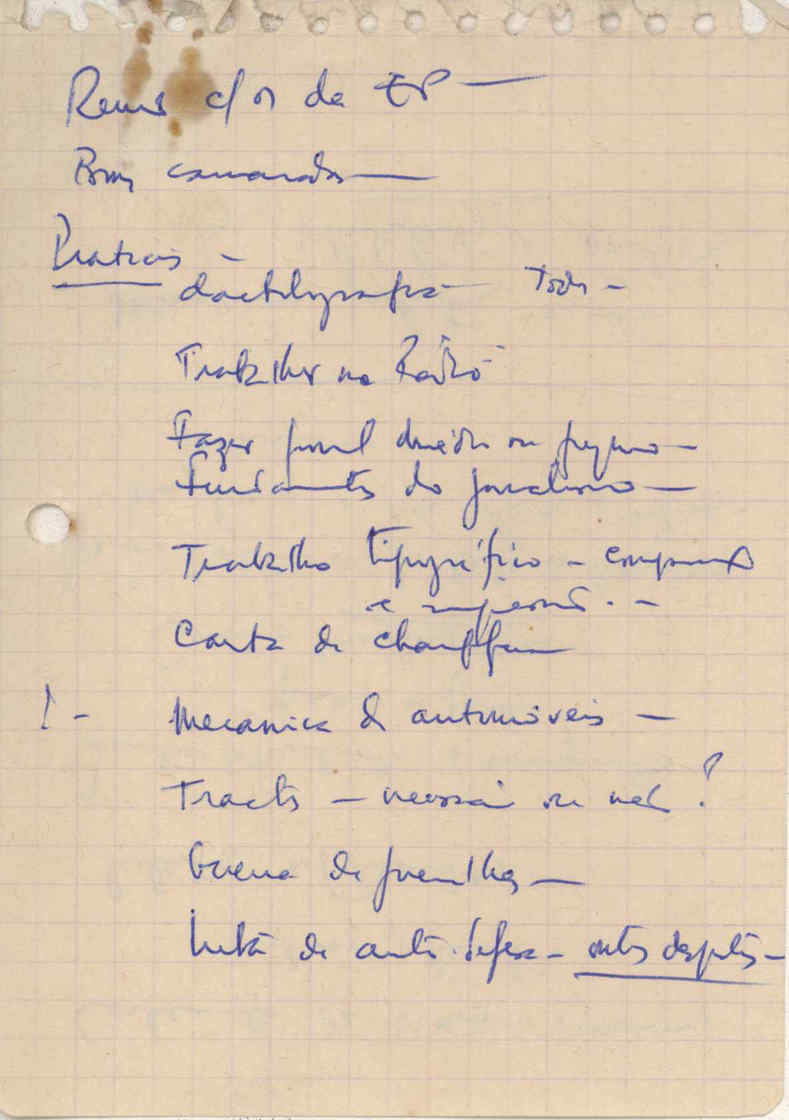 c/ os da EP —
Bons camaradas —
Práticas —
dactilografia — Todos —
Trabalhos na Rádio
Fazer jornal diário ou pequeno —
Fundamentos do jornalismo —
Trabalho tipográfico —
e impressão. —
Carta de chauffeur —
! — Mecanica de automóveis —
Tracts — necessário ou não?
Guerra de guerrilhas —
Luta de auto-defesa — outros desportos —